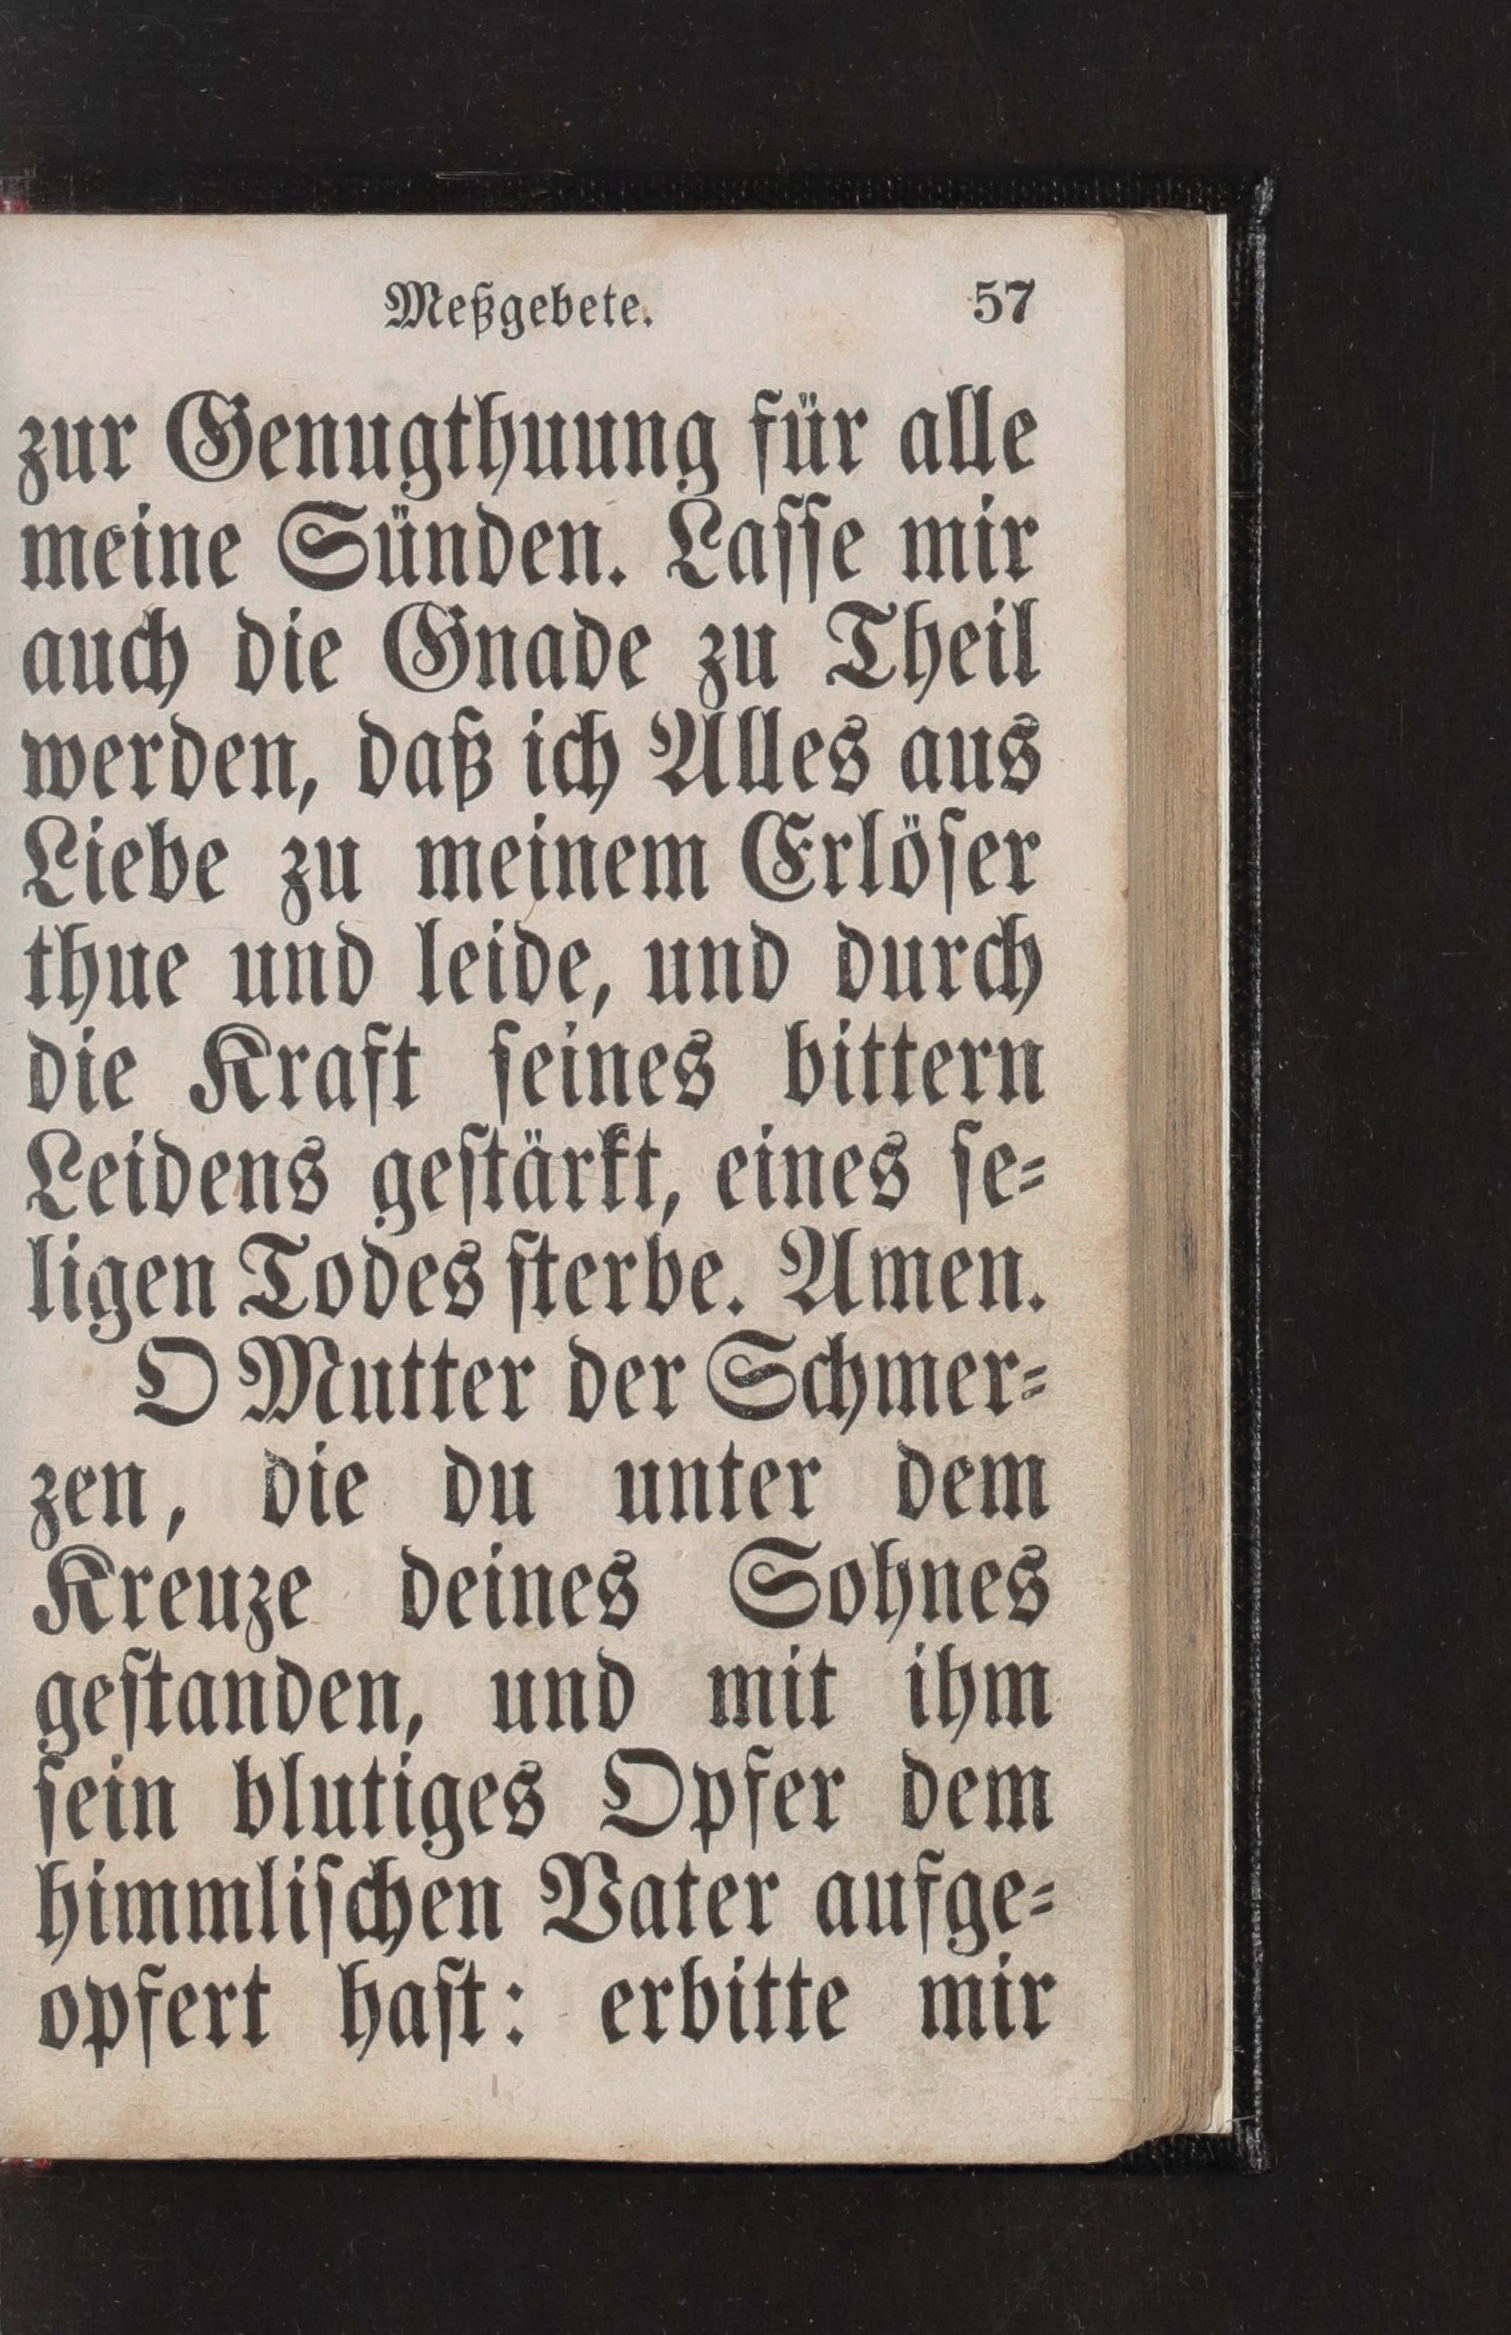 Meßgebete. 57
zur Genugthuung für alle
meine Sünden. Lasse mir
auch die Gnade zu Theil
werden, daß ich Alles aus
Liebe zu meinem Erlöser
thue und leide, und durch
die Kraft seines bittern
Leidens gestärkt, eines se-
ligen Todes sterbe. Amen.
O Mutter der Schmer-
zen, die du unter dem
Kreuze deines Sohnes
gestanden, und mit ihm
sein blutiges Opfer dem
himmlischen Vater aufge-
opfert hast: erbitte mir